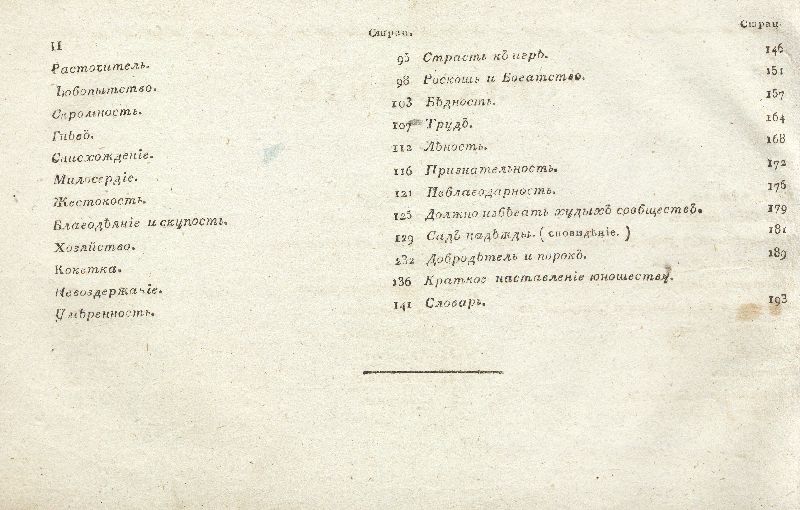 II
Стран.
Расточитель. 95
Любопытство. 98
Скромность. 103
Гнѣвъ. 107
Снисхожденіе. 112
Милосердіе. 116
Жестокость. 121
Благодѣяніе и скупость. 125
Хозяйство. 129
Кокетка. 132
Невоздержаніе. 136
Умѣренность. 141
Стран.
Страсть къ игрѣ. 146
Роскошь и Богатство. 151
Бѣдность. 157
Трудъ. 164
Лѣность. 168
Признательность. 172
Неблагодарность. 176
Должно избѣгать худыхъ сообществъ. 179
Садъ надѣжды. (сновидѣніе.) 181
Добродѣтель и порокъ. 189
Краткое наставленіе юношеству.
Словарь. 193